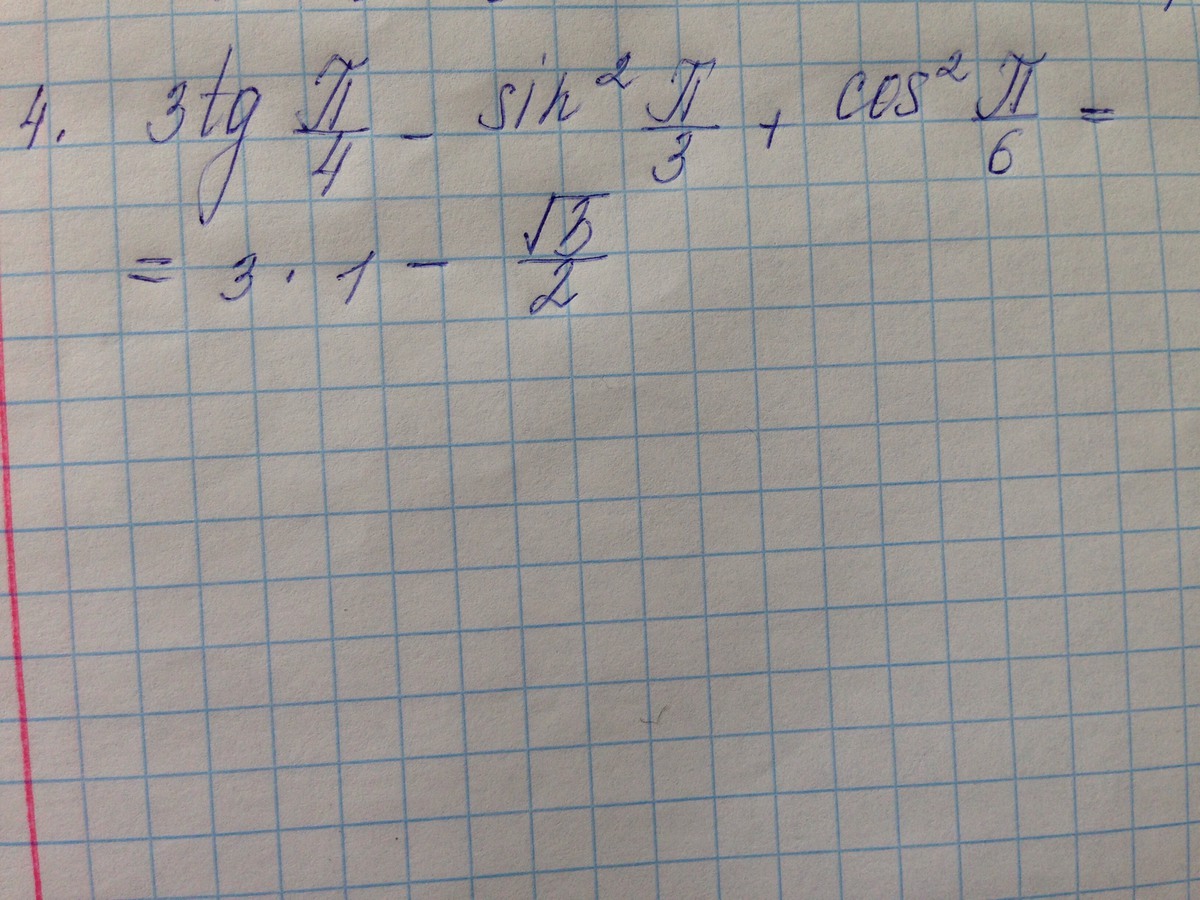 4. 3tg π/4 - sin² π/3 + cos² π/6 =
= 3 · 1 - √3/2